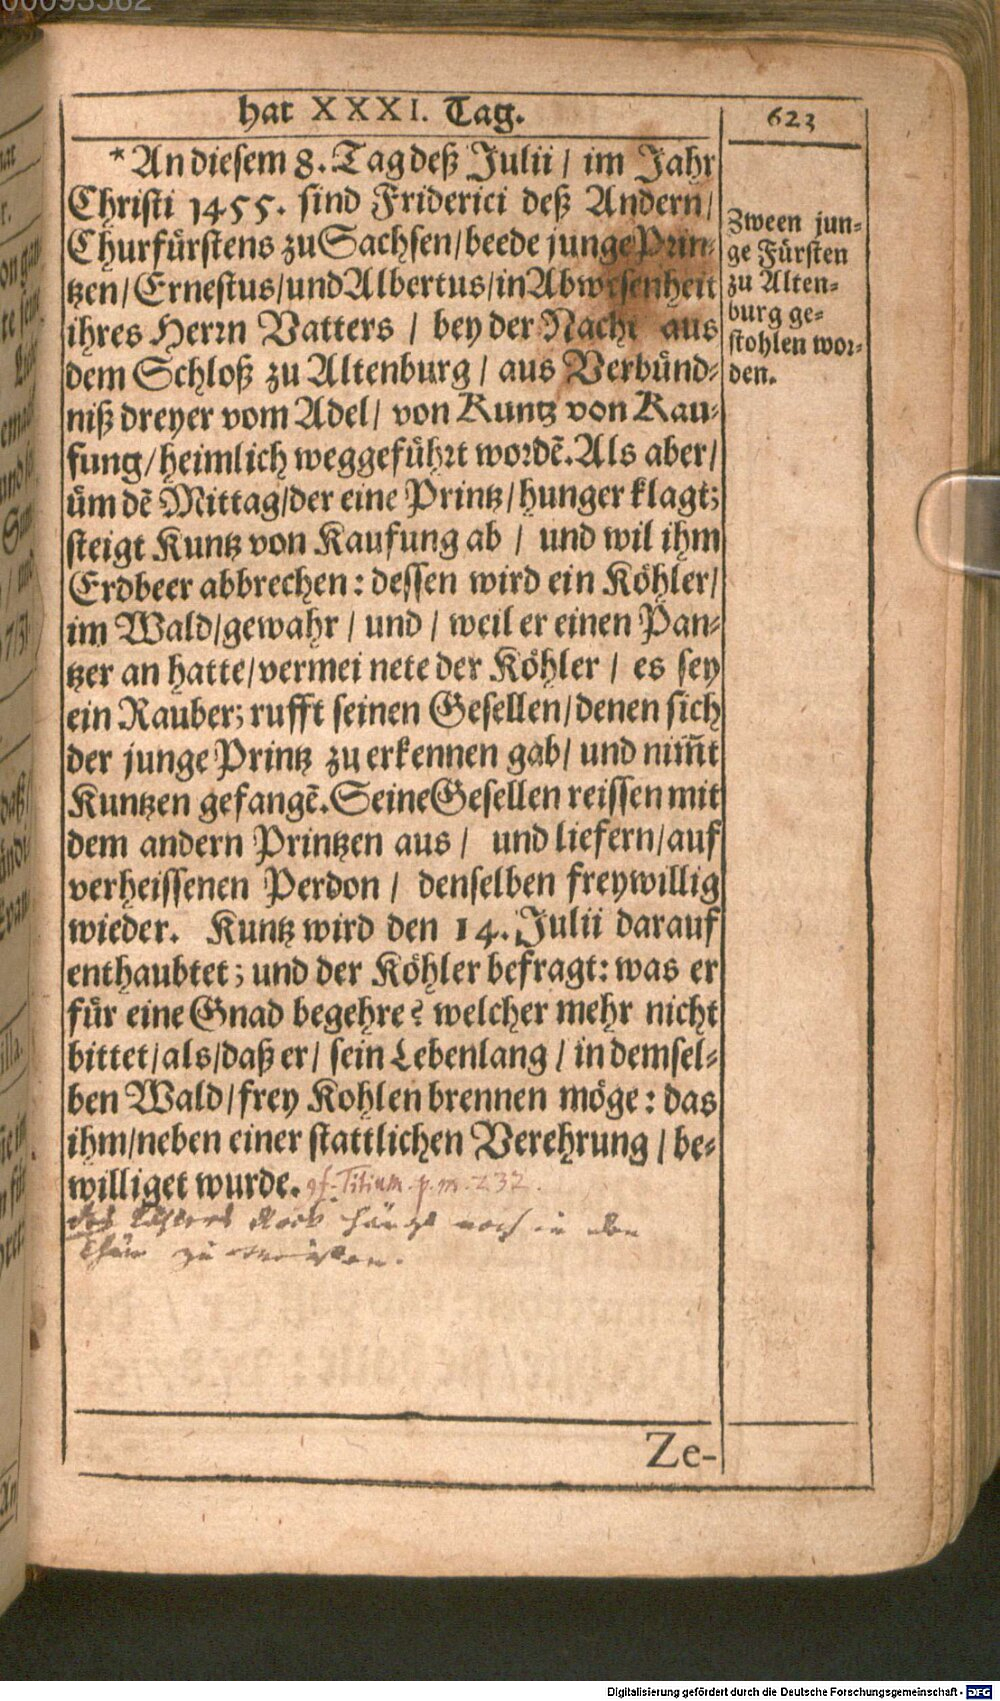 00093562
hat XXXI. Tag.
623
*An diesem 8. Tag deß Julii / im Jahr
Christi 1455. sind Friderici deß Andern/
Churfürstens zu Sachsen/beede junge Prin-
tzen/Ernestus/und Albertus/in Abwesenheit
ihres Herrn Vatters / bey der Nacht aus
dem Schloß zu Altenburg / aus Verbünd-
niß dreyer vom Adel/ von Kuntz von Kau-
fung/heimlich weggeführt wordẽ. Als aber/
üm dẽ Mittag/der eine Printz/hunger klagt;
steigt Kuntz von Kaufung ab / und wil ihm
Erdbeer abbrechen: dessen wird ein Köhler/
im Wald/gewahr / und / weil er einen Pan-
tzer an hatte/vermeinete der Köhler / es sey
ein Rauber; rufft seinen Gesellen/denen sich
der junge Printz zu erkennen gab/ und nim̃t
Kuntzen gefangẽ. Seine Gesellen reissen mit
dem andern Printzen aus / und liefern/auf
verheissenen Perdon / denselben freywillig
wieder. Kuntz wird den 14. Julii darauf
enthaubtet; und der Köhler befragt: was er
für eine Gnad begehre? welcher mehr nicht
bittet/als/daß er/ sein Lebenlang / in demsel-
ben Wald/frey Kohlen brennen möge: das
ihm/neben einer stattlichen Verehrung / be-
williget wurde. Titium. p. m. 232.
Zween jun-
ge Fürsten
zu Alten-
burg ge-
stohlen wor-
den.
Ze-
Digitalisierung gefördert durch die Deutsche Forschungsgemeinschaft - DFG